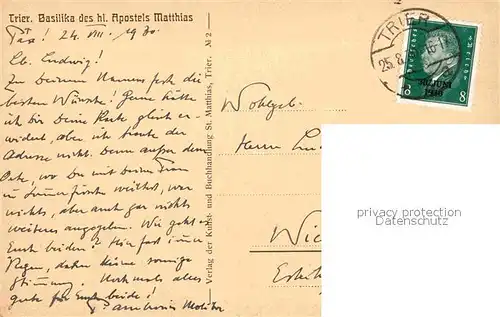 Trier. Basilika des hl. Apostels Matthias
Pax! 24. VIII. 1930.
Lb. Ludwig!
Zu deinem Namensfest die
besten Wünsche! Gerne hätte
ich dir Deine Karte gleich er-
widert, aber ich traute der
Adresse nicht. Denn ausser dem
Orte, wo Du mit Deiner Frau
in Sommerfrische weiltest, war
nichts, aber auch gar nichts
weiteres angegeben. Wie geht es
Euch beiden? Hier fast immer
Regen, daher keine sonnige
Stimmung. Nochmals alles
gute für Euch beide!
Verlag der Kunst- und Buchhandlung St. Matthias, Trier. M 2
TRIER
25.8.
Deutsches Reich
30. JUNI
1930
8 8
Wohlgeb.
Herrn
privacy protection